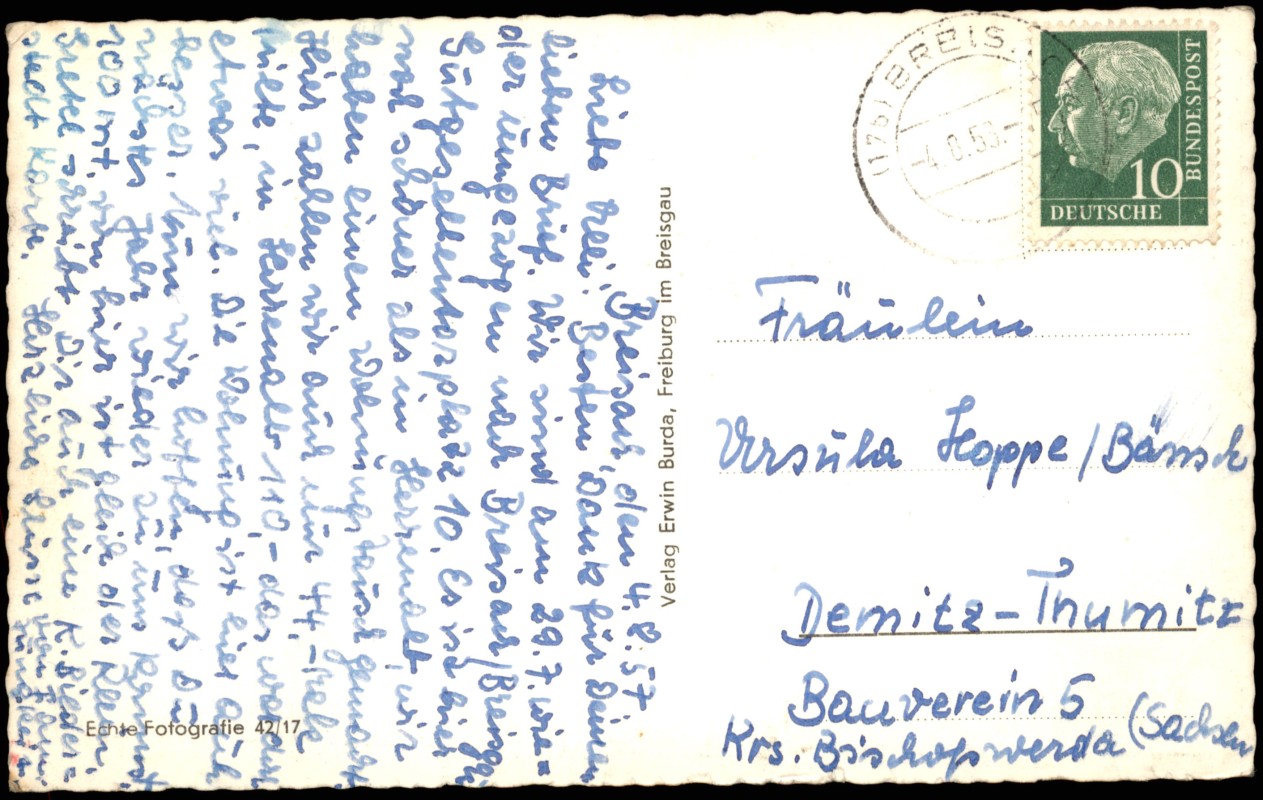 Breisach, den 4.8.57
Liebe Uli! Besten Dank für Deinen
lieben Brief. Wir sind am 29.7. wie=
der umgezogen nach Breisach/Breisg.
Gutgesellentorplatz 10. Es ist hier
noch schöner als in Herrenalb, wir
haben einen Wohnungstausch gemacht.
Hier zahlen wir auch nur 44,-
Miete, in Herrenalb 110,- das war doch
etwas viel. Die Wohnung ist hier auch
Nun wir hoffen, dass Du
nächstes Jahr wieder zu uns kommst
100 km von hier ist gleich der
Gretel schreibt Dir auch eine
stadt Karte. Herzliche Grüsse von
Verlag Erwin Burda, Freiburg im Breisgau
Echte Fotografie 42/17
(17b) BREIS
-4.8.58.-
10
BUNDESPOST
DEUTSCHE
Fräulein
Ursula Hoppe/Bänsch
Demitz-Thumitz
Bauverein 5
Krs. Bischofswerda (Sachsen